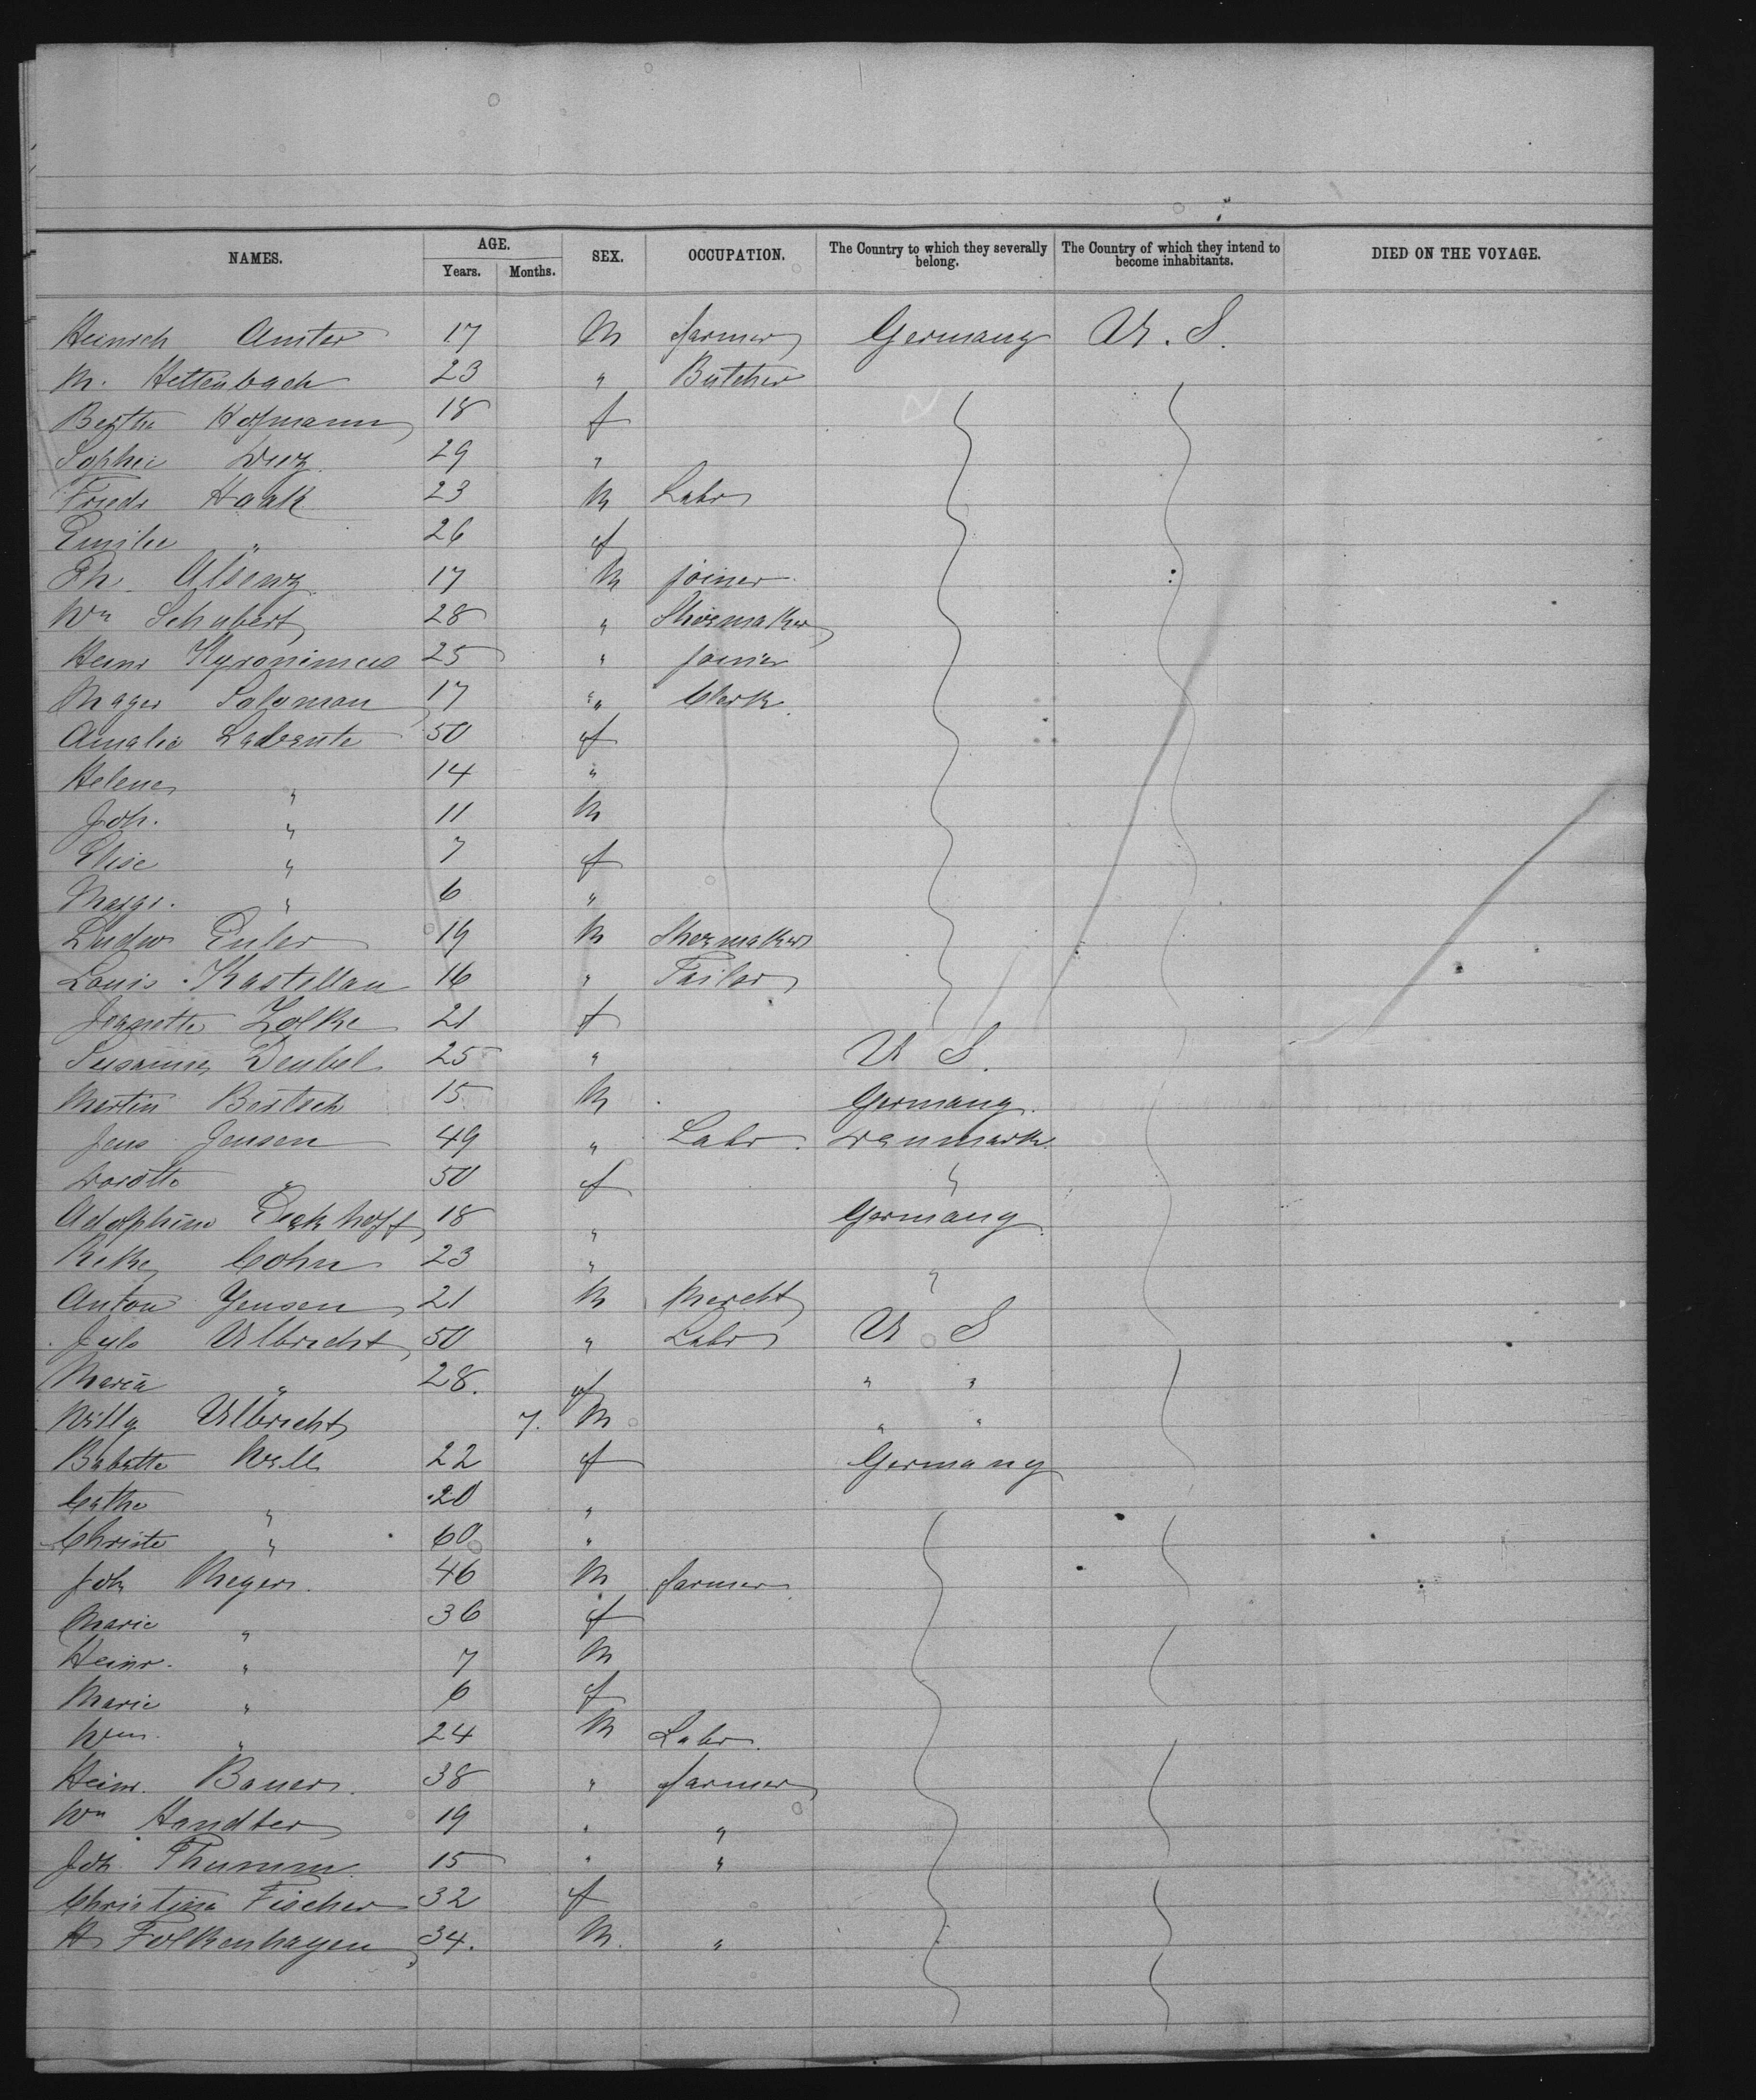 NAMES. AGE. SEX. OCCUPATION. The Country to which they severally belong. The Country of which they intend to become inhabitants. DIED ON THE VOYAGE.
Years. Months.
Heinrich Amter 17 M farmer Germany U. S.
M. Hettenbach 23 " Butcher
Bertha Hofmann 18 f
Sophie 29 "
Friedr Haak 23 M Labr
Emilie " 26 f
Ph. Alsenz 17 M joiner
Wm Schubert 28 " Shoemaker
Heinr Hyronimus 25 " joiner
Mayer Soloman 17 " Clerk
Amalie 50 f
Helene " 14 "
Joh. " 11 M
Elise " 7 f
Margr. " 6 "
Ludw Euler 19 M Shoemaker
Louis Kastellan 16 " Tailor
Jeanette Zolke 21 f
Susanna Deubel 25 " U S.
Martin Bertsch 15 M Germany.
Jens Jensen 49 " Labr. Denmark
Dorotte " 50 f "
Adolphine Eickhoff 18 " Germany
Reke Cohn 23 " "
Anton Jensen 21 M Mercht "
Juls Ulbricht 50 " Labr U S
Maria " 28. f " "
Willy Ulbricht 7. M " "
Babette Well 22 f Germany
Cathe " 20 "
Christe " 60 "
Joh Meyer. 46 M farmer
Marie " 36 f
Heinr. " 7 M
Marie " 6 f
Wm. " 24 M Labr.
Heinr. Bauer. 38 " farmer
Wm Handter 19 " "
Joh Thumm 15 " "
Christina Fischer 32 f
H Folkenhagen 34. M. "